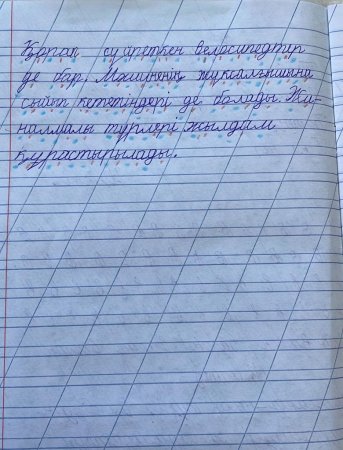 Қорап су өпеткен велосипедтер
де бар. Машиненің жүксалғышына
сыйып кететіндері де болады. Жи-
налмалы түрлері жылдам
құрастырылады.